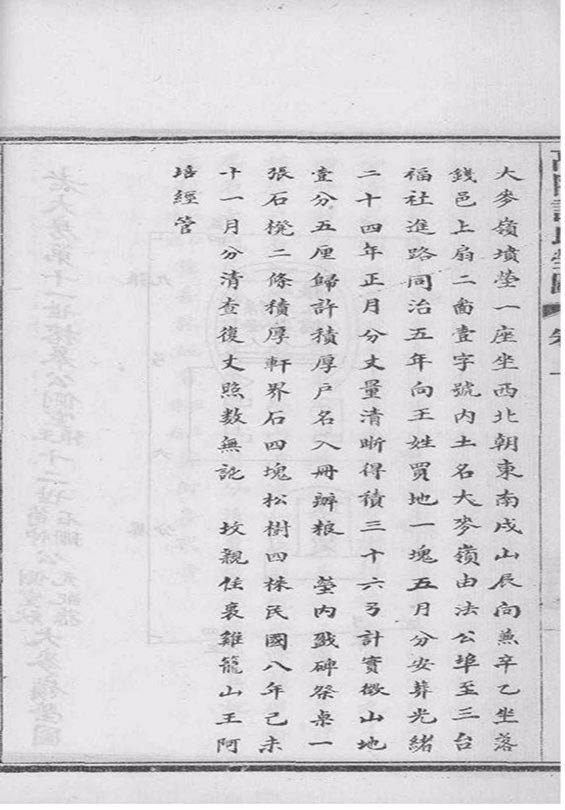 大麥嶺墳塋一座坐西北朝東南戌山辰向兼辛乙坐落
錢邑上扇二啚壹字號內土名大麥嶺由法公埠至三台
福社進路同治五年向王姓買地一塊五月分安葬光緒
二十四年正月分丈量清晰得積三十六弓計實徵山地
壹分五厘歸許積厚戶名入冊辦粮 塋內戤碑祭桌一
張石櫈二條積厚軒界石四塊松樹四株民國八年己未
十一月分清查復丈照數無訛 坟親住裏雞籠山王阿
培經管